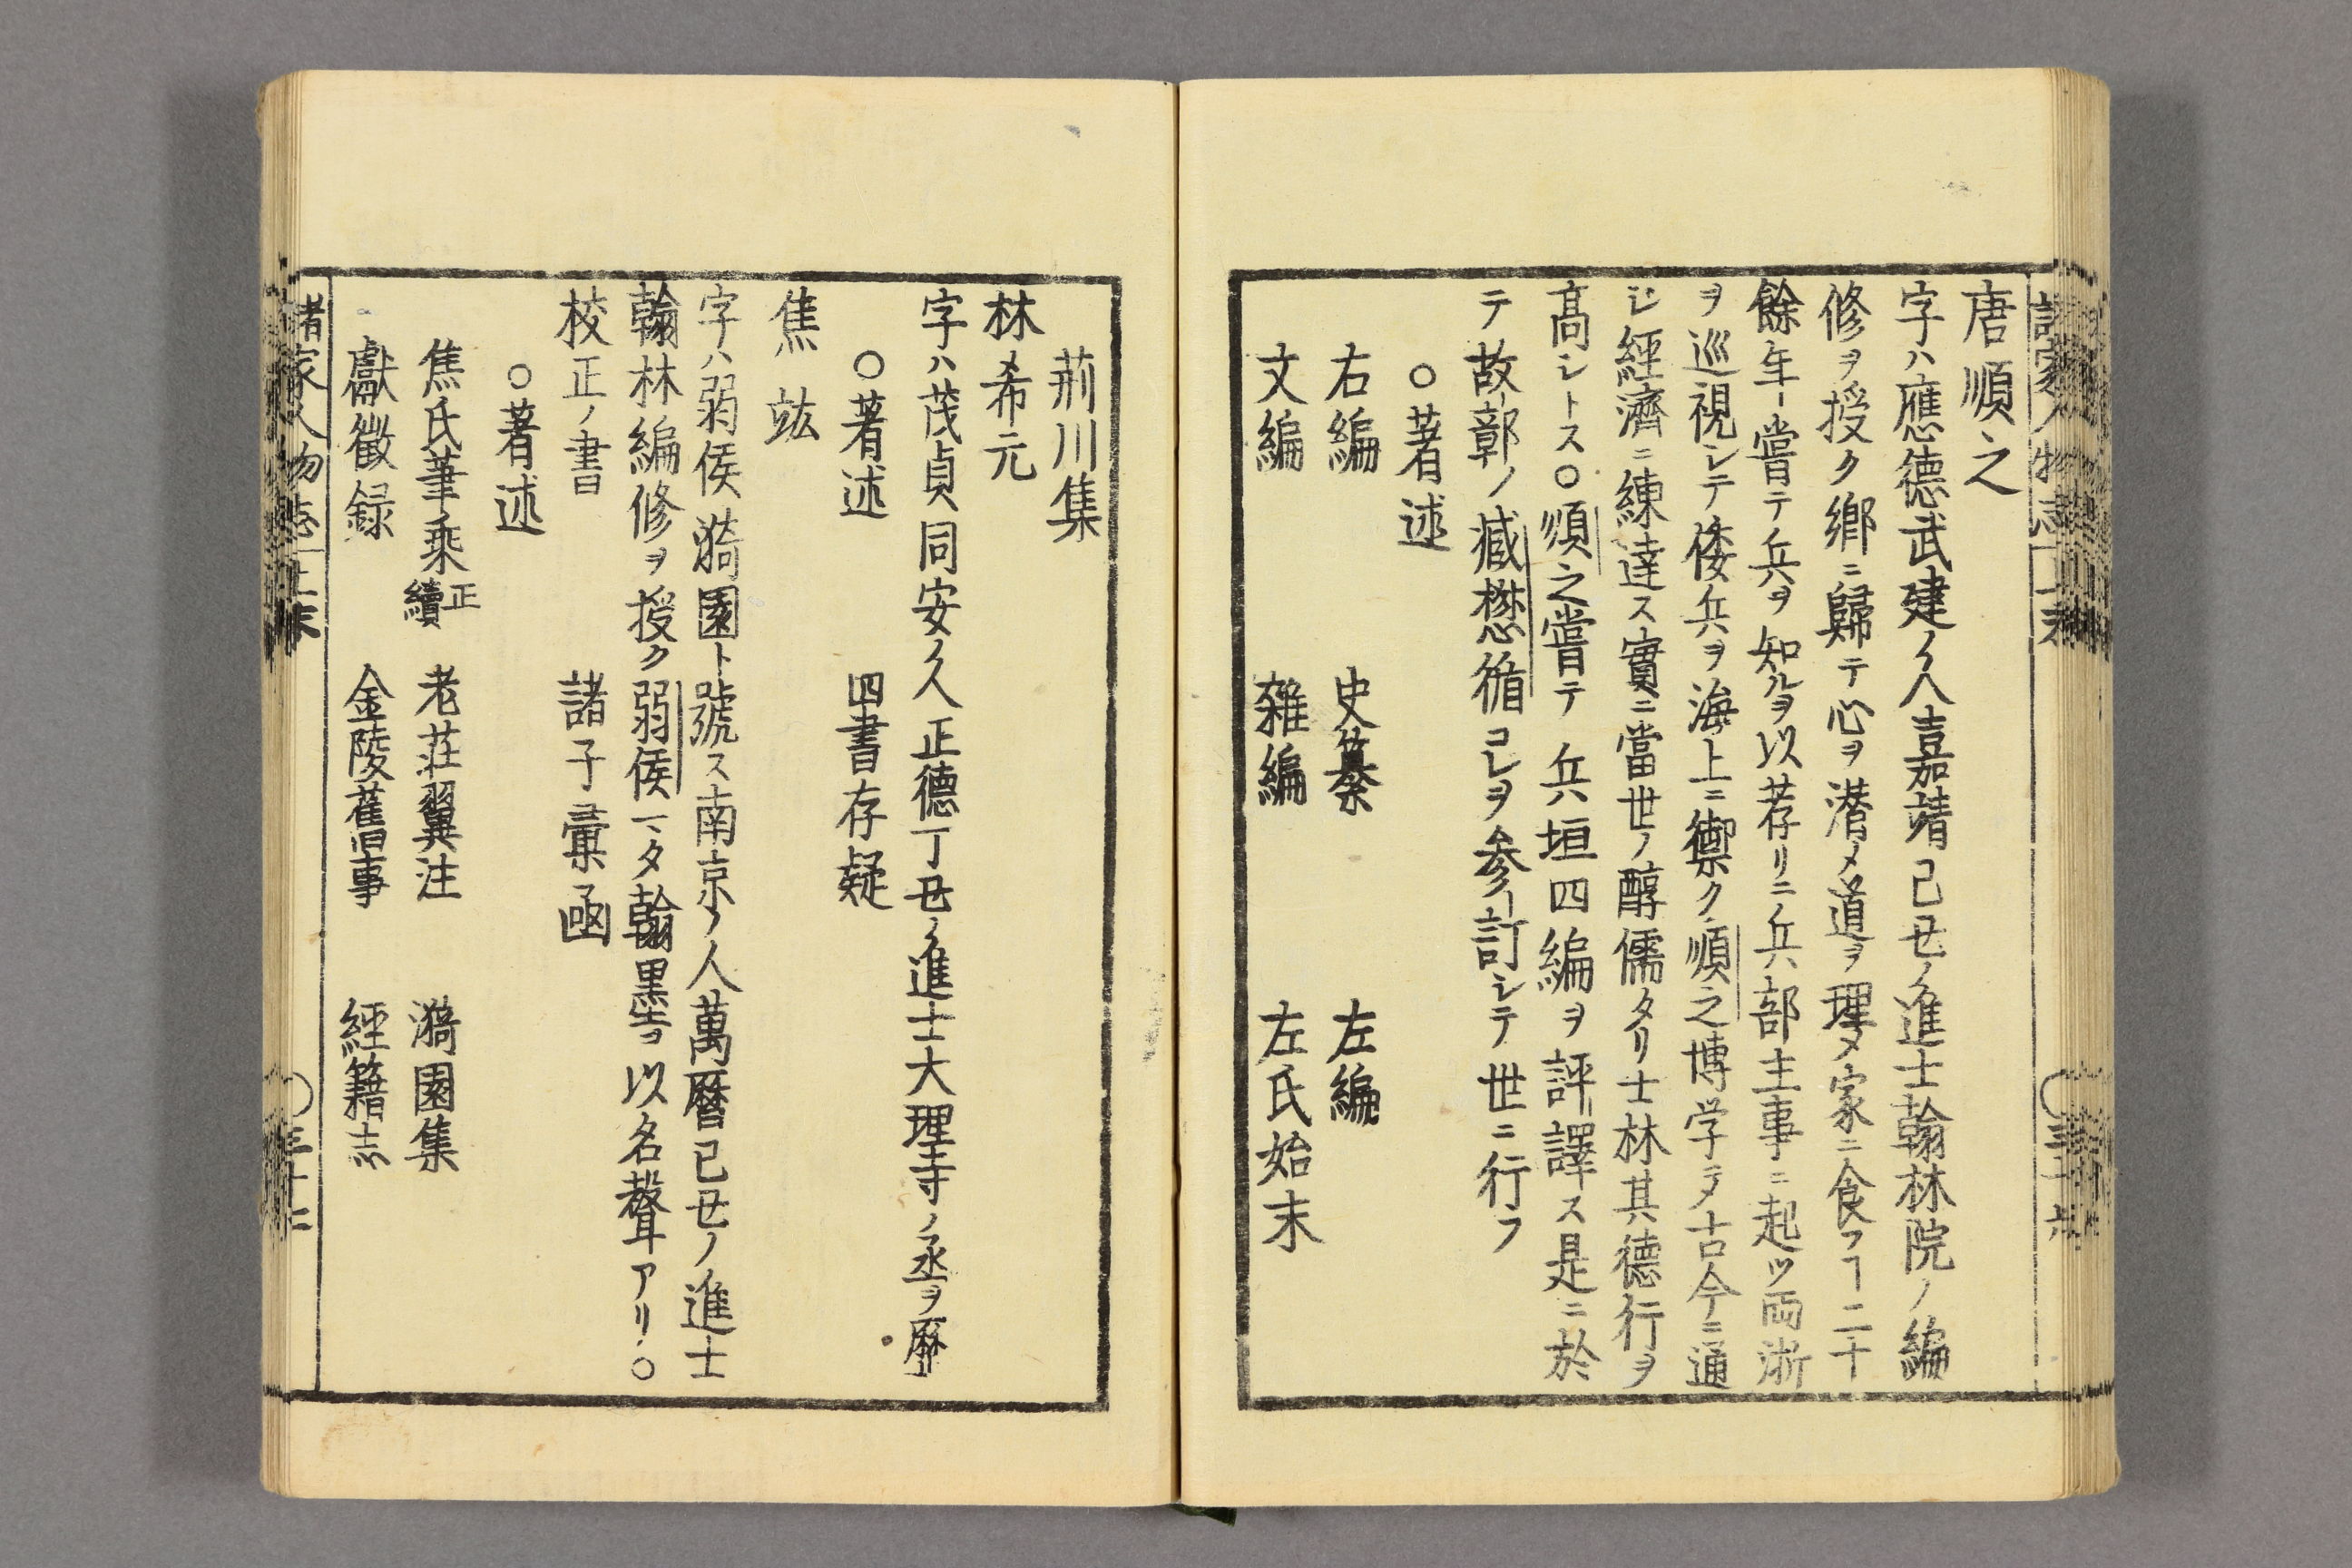 唐順之
字ハ應德武建ノ人嘉靖己丑ノ進士翰林院ノ編
修ヲ授ク鄉ニ歸テ心ヲ潜メ道ヲ理メ家ニ食フヿ二十
餘年嘗テ兵ヲ知ルヲ以荐リニ兵部主事ニ起ツ両浙
ヲ巡視シテ倭兵ヲ海上ニ禦ク順之博学ニメ古今ニ通
シ經濟ニ練達ス實ニ當世ノ醇儒タリ士林其德行ヲ
高シトス○順之嘗テ兵垣四編ヲ評譯ス是ニ於
テ故鄣ノ臧懋循コレヲ参訂シテ世ニ行フ
○著述
右編 史纂 左編
文編 雜編 左氏始末
荊川集
林希元
字ハ茂貞同安ノ人正德丁丑ノ進士大理寺ノ丞ヲ歷
○著述 四書存疑
焦竑
字ハ弱侯漪園ト號ス南京ノ人萬曆己丑ノ進士
翰林編修ヲ授ク弱侯マタ翰墨ヲ以名聲アリ○
校正ノ書 諸子彙函
○著述
焦氏筆乘正續 老莊翼注 漪園集
獻徵録 金陵舊事 經籍志
諸家人物志